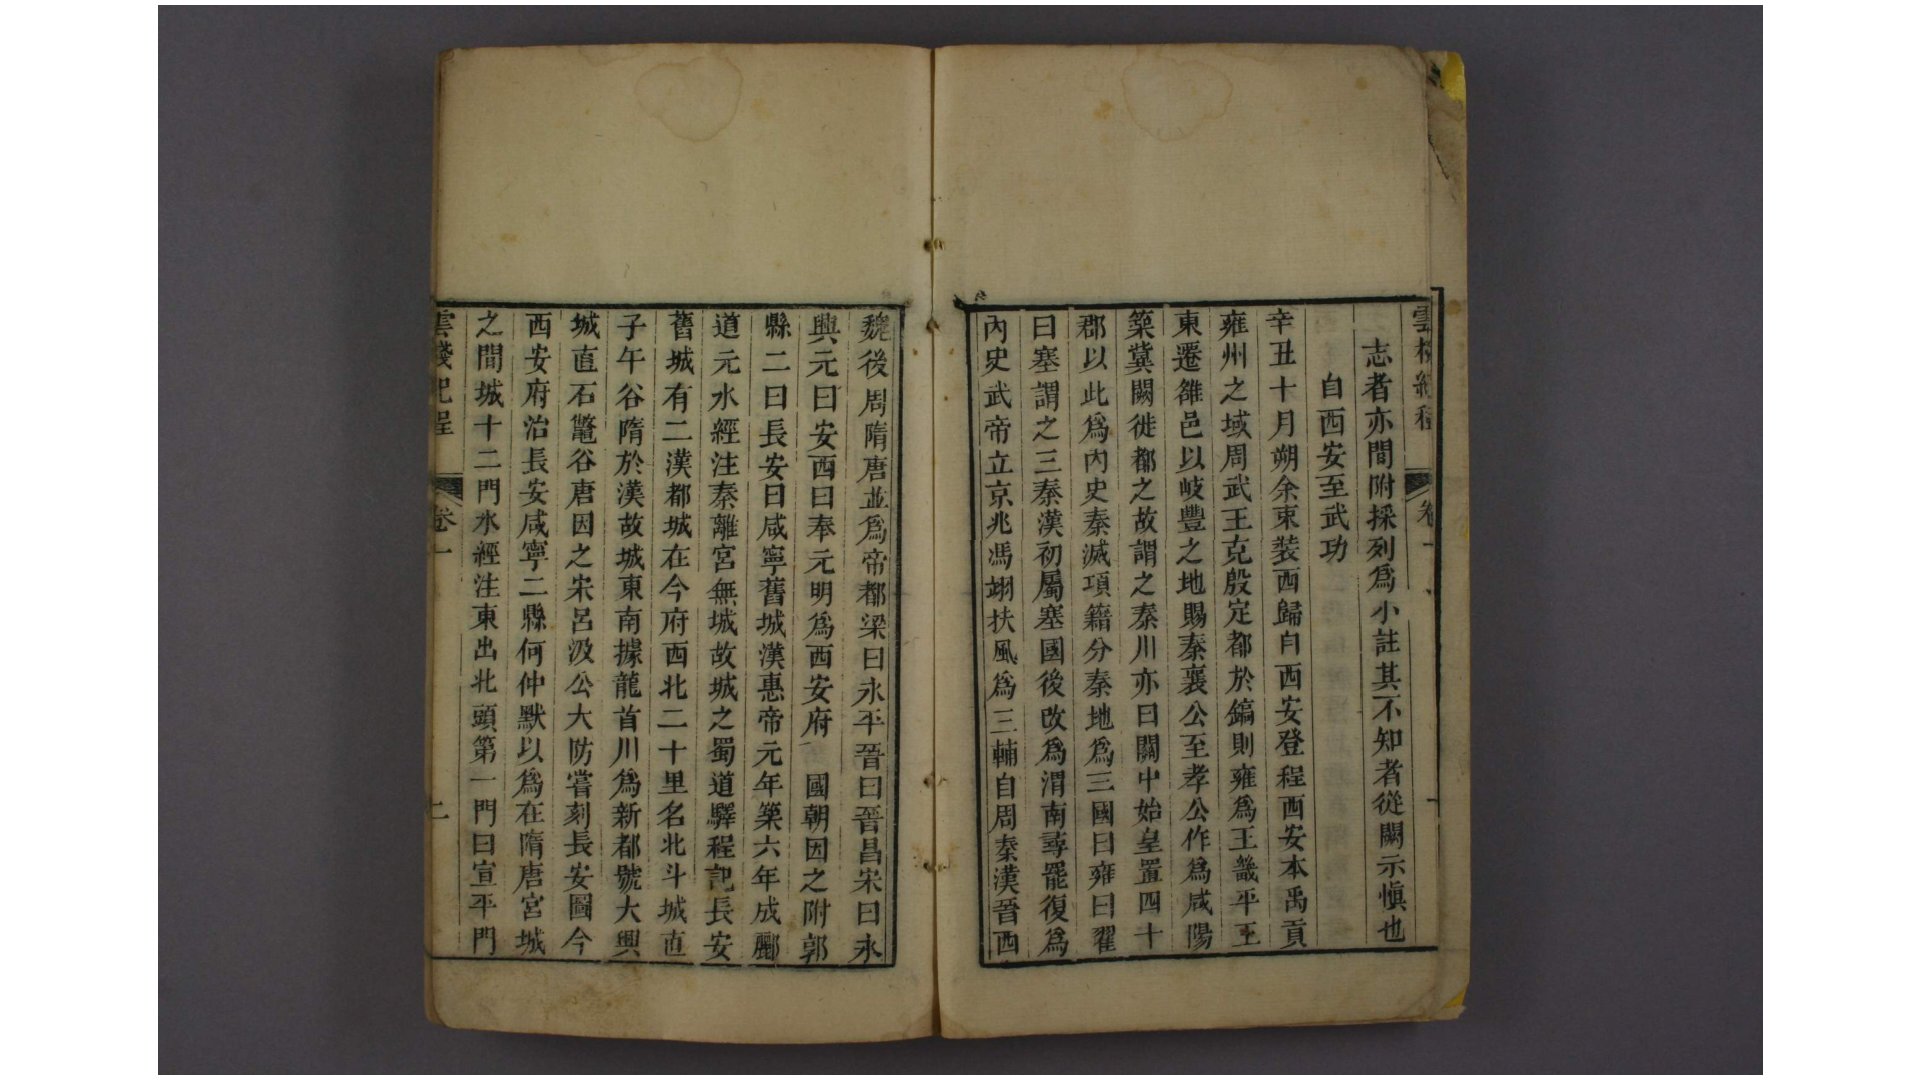 雲棧紀程
卷一
志者亦間附採列爲小註其不知者從闕示慎也
自西安至武功
辛丑十月朔余束裝西歸自西安登程西安本禹貢
雍州之域周武王克殷定都於鎬則雍爲王畿平王
東遷雒邑以岐豐之地賜秦襄公至孝公作爲咸陽
築冀闕徙都之故謂之秦川亦曰關中始皇置四十
郡以此爲內史秦滅項籍分秦地爲三國曰雍曰翟
曰塞謂之三秦漢初屬塞國後改爲渭南尋罷復爲
內史武帝立京兆馮翊扶風爲三輔自周秦漢晉西
魏後周隋唐並爲帝都梁曰永平晉曰晉昌宋曰永
興元曰安西曰奉元明爲西安府 國朝因之附郭
縣二曰長安曰咸寧舊城漢惠帝元年築六年成酈
道元水經注秦離宮無城故城之蜀道驛程記長安
舊城有二漢都城在今府西北二十里名北斗城直
子午谷隋於漢故城東南據龍首川爲新都號大興
城直石鼈谷唐因之宋呂汲公大防嘗刻長安圖今
西安府治長安咸寧二縣何仲默以爲在隋唐宮城
之間城十二門水經注東出北頭第一門曰宣平門
雲棧紀程
卷一